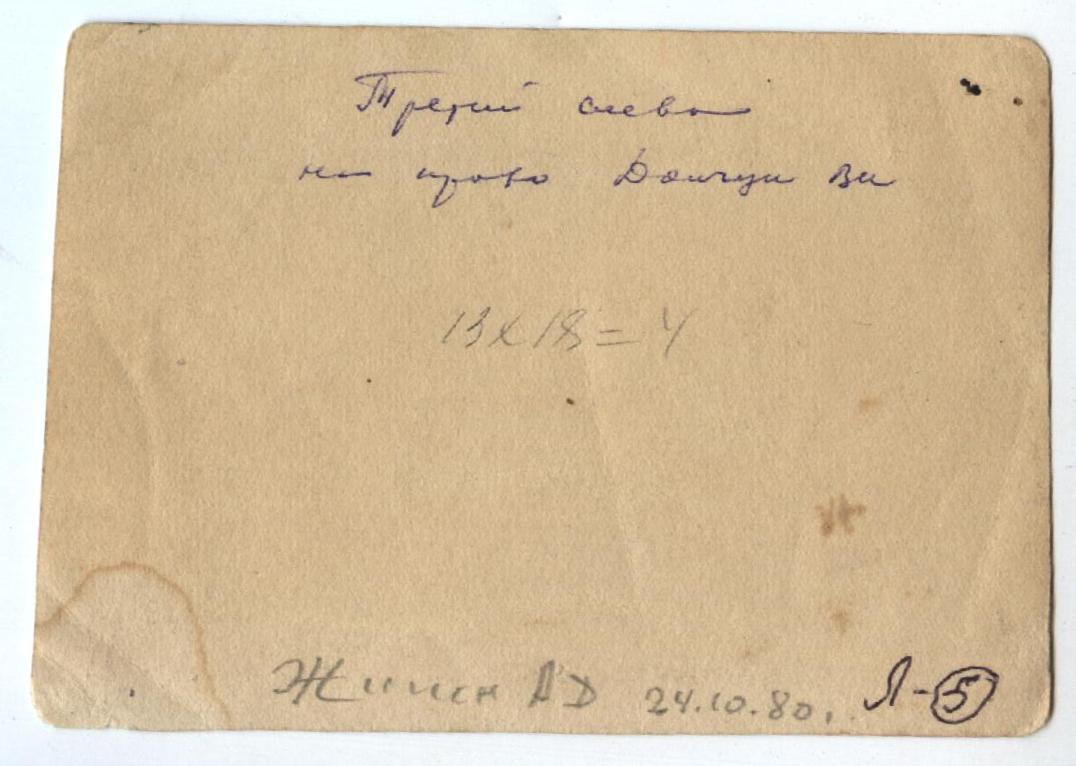 Третий слева
на право Долчук Ви
13х18=4
Жилин АД 24.10.80.
Л-5